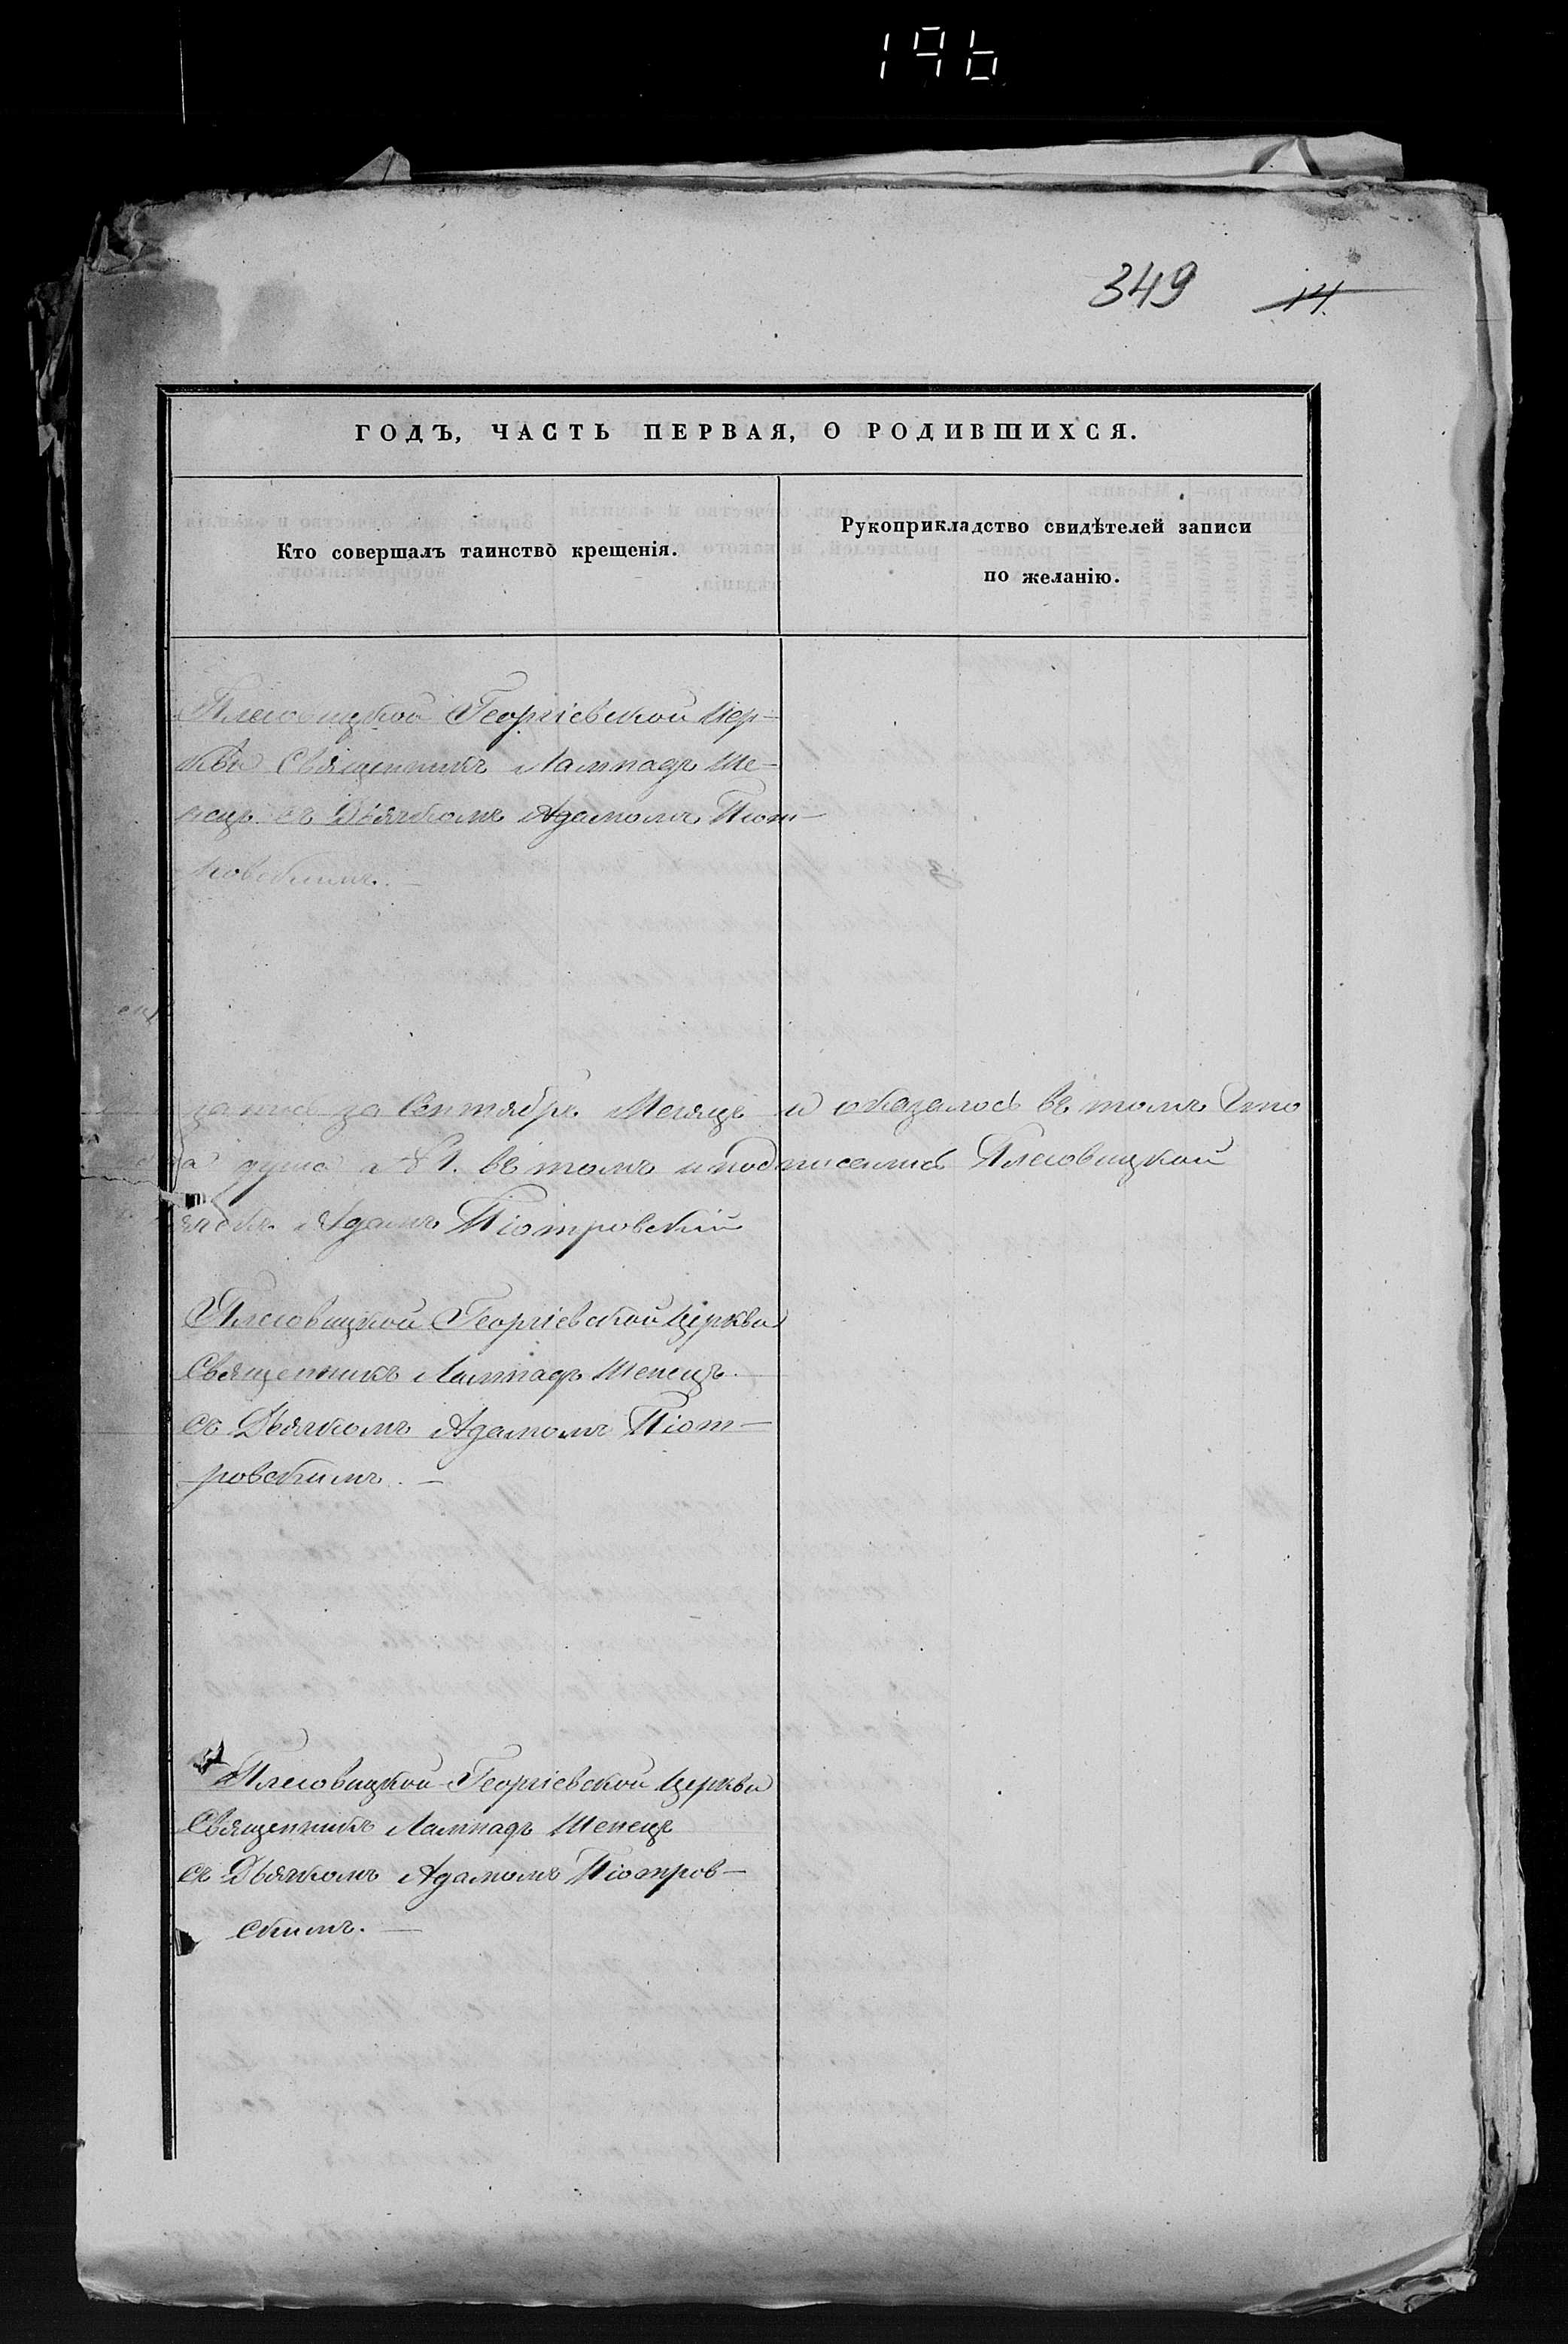 196
349 14.
ГОДЪ, ЧАСТЬ ПЕРВАЯ, О РОДИВШИХСЯ.
Кто совершалъ таинство крещенія.
Рукоприкладство свидѣтелей записи
по желанію.
Плесовицкой Георгіевской Цер-
кви Священникъ Лампадъ Ше-
пецъ съ Дьячкомъ Адамомъ Піот-
ровскимъ. —
запись за Сентябрь Месяцъ и оказалось въ томъ
душа № 1. въ томъ и подписались Плесовицкой
Адамъ Піотровскій
Плесовицкой Георгіевской Церкви
Священникъ Лампадъ Шепецъ
съ Дьячкомъ Адамомъ Піот-
ровскимъ. —
Плесовицкой Георгіевской Церкви
Священникъ Лампадъ Шепецъ
съ Дьячкомъ Адамомъ Піотров-
скимъ. —